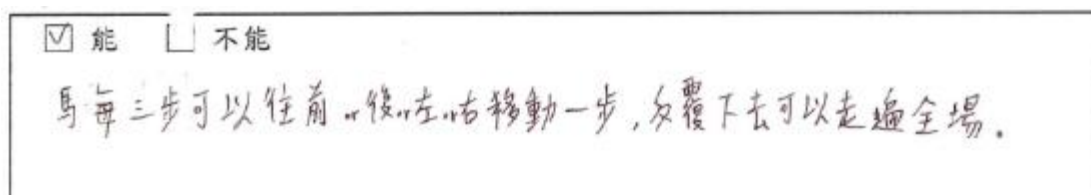 ☑ 能 □ 不能
馬每三步可以往前、後、左、右移動一步,反覆下去可以走遍全場。